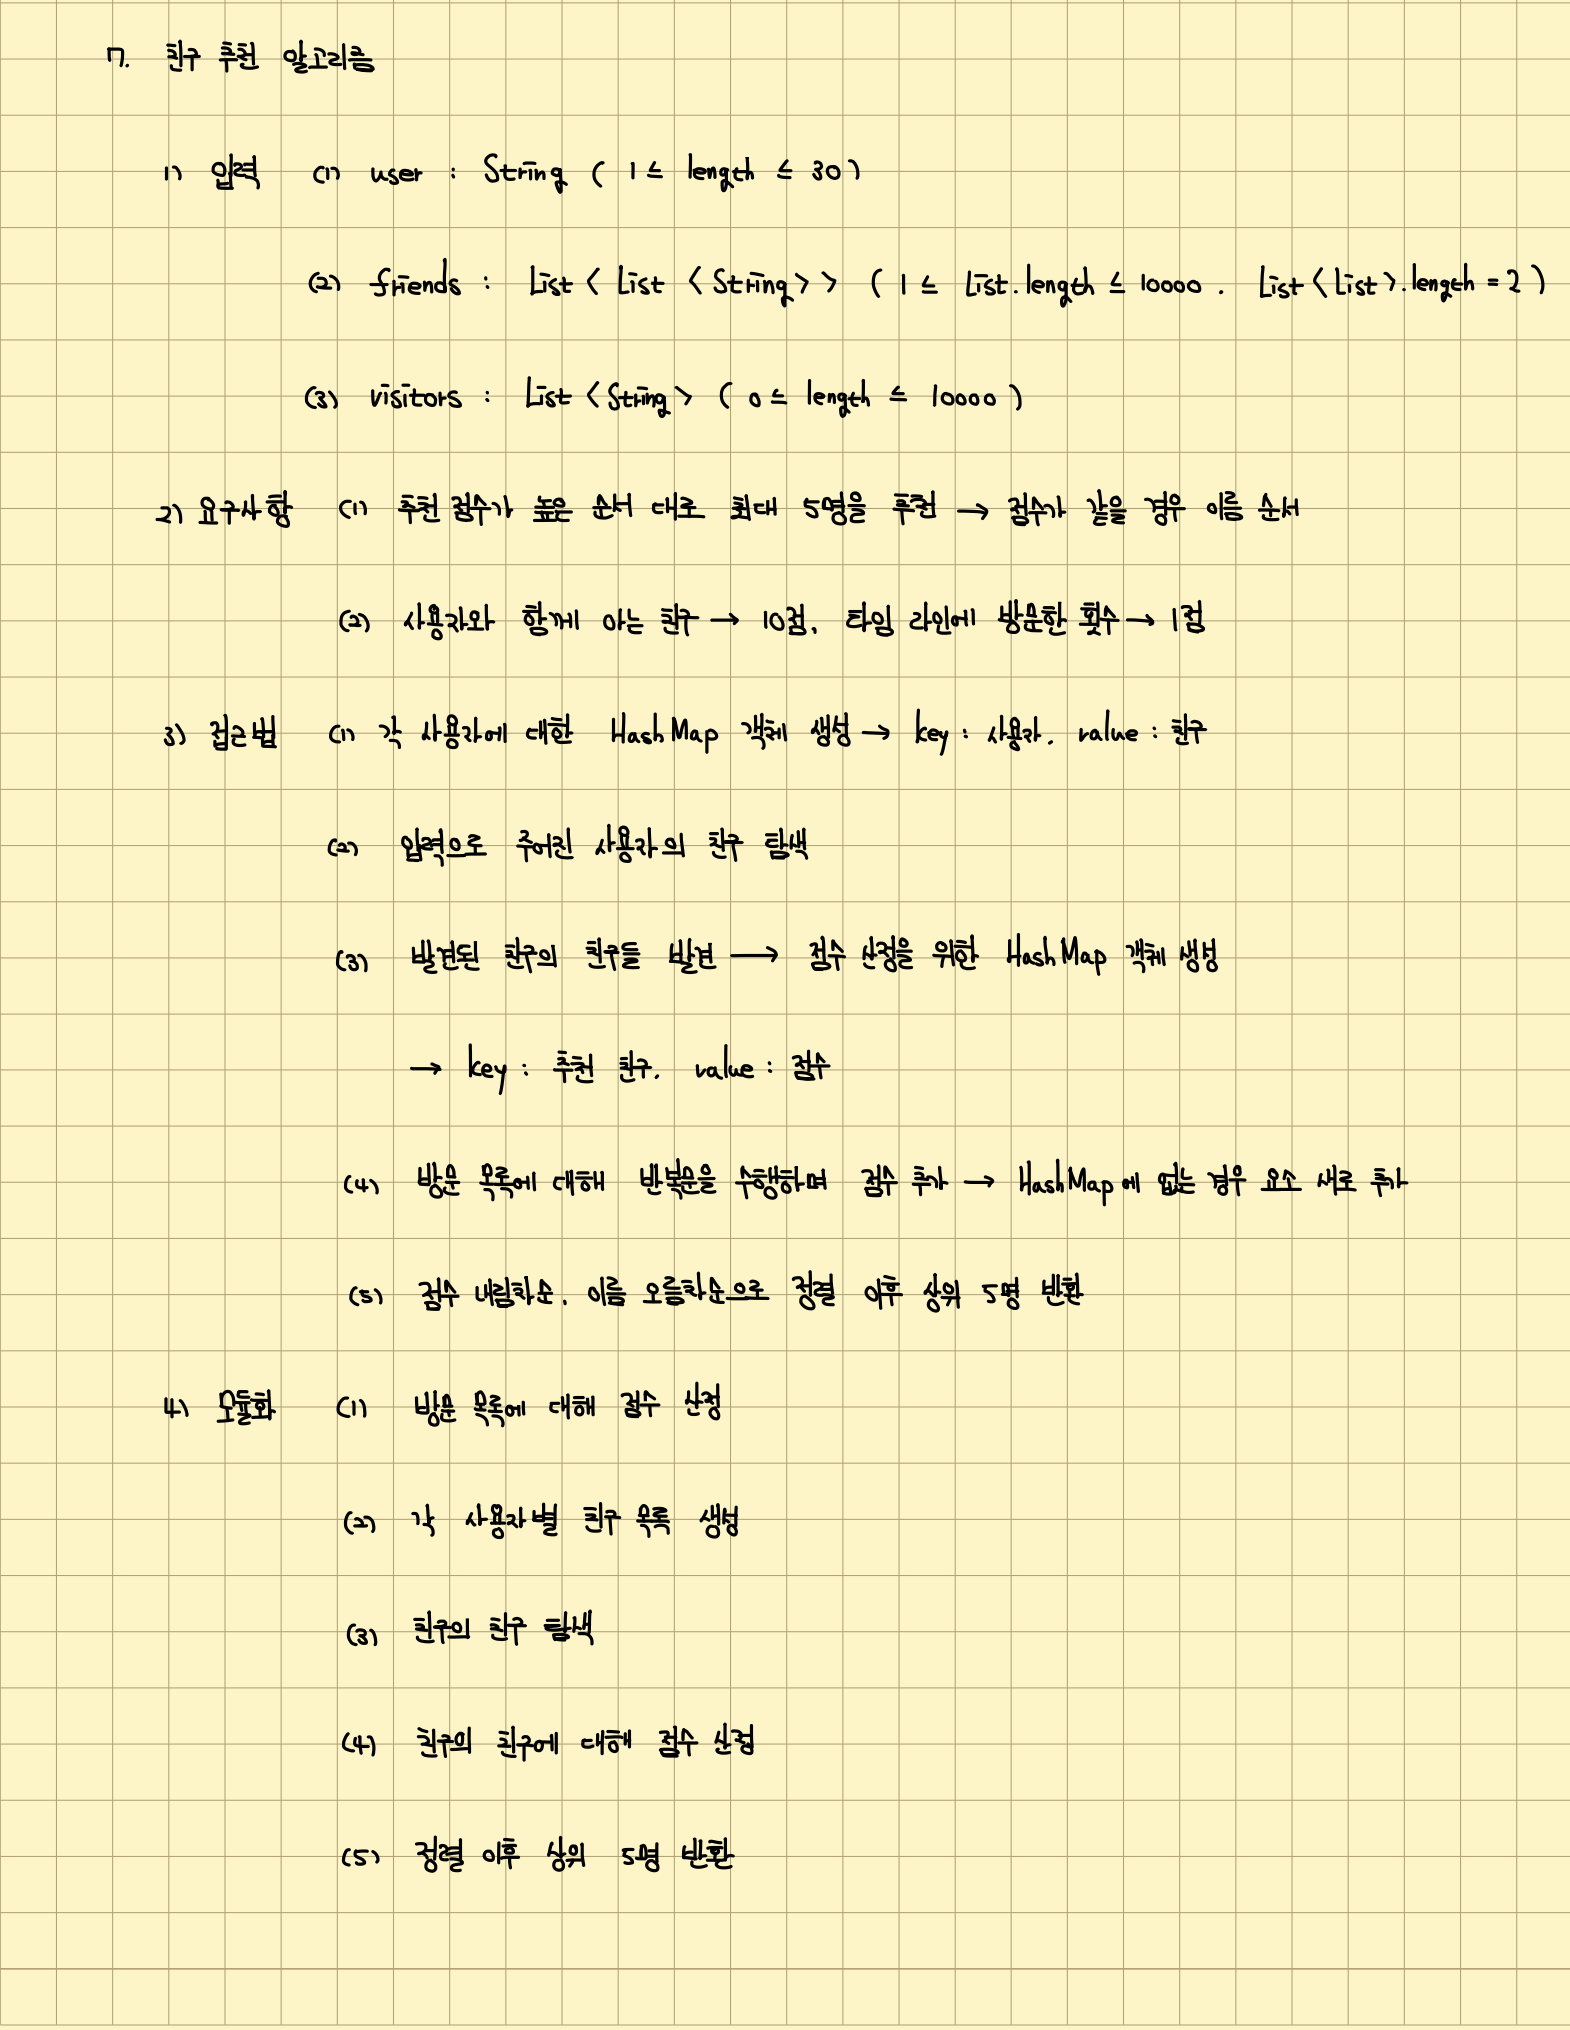 7. 친구 추천 알고리즘
1) 입력 (1) user : String ( 1 ≤ length ≤ 30 )
(2) friends : List < List < String > > ( 1 ≤ List.length ≤ 10000 . List < List >.length = 2 )
(3) visitors : List < String > ( 0 ≤ length ≤ 10000 )
2) 요구사항 (1) 추천 점수가 높은 순서 대로 최대 5명을 추천 → 점수가 같을 경우 이름 순서
(2) 사용자와 함께 아는 친구 → 10점, 타임 라인에 방문한 횟수 → 1점
3) 접근법 (1) 각 사용자에 대한 HashMap 객체 생성 → key : 사용자, value : 친구
(2) 입력으로 주어진 사용자의 친구 탐색
(3) 발견된 친구의 친구들 발견 → 점수 산정을 위한 HashMap 객체 생성
→ key : 추천 친구, value : 점수
(4) 방문 목록에 대해 반복문을 수행하며 점수 추가 → HashMap에 없는 경우 요소 새로 추가
(5) 점수 내림차순, 이름 오름차순으로 정렬 이후 상위 5명 반환
4) 모듈화 (1) 방문 목록에 대해 점수 산정
(2) 각 사용자별 친구 목록 생성
(3) 친구의 친구 탐색
(4) 친구의 친구에 대해 점수 산정
(5) 정렬 이후 상위 5명 반환